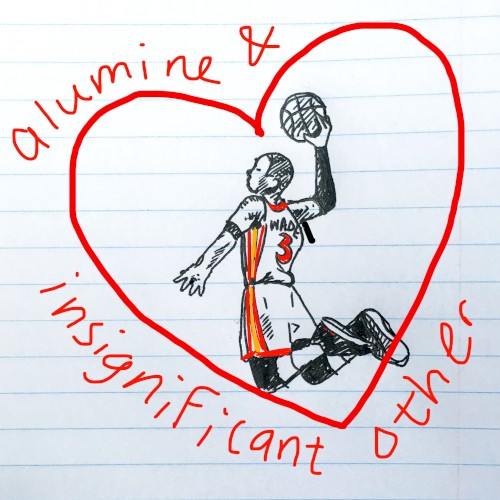 alumine &
WADE
3
insignificant other